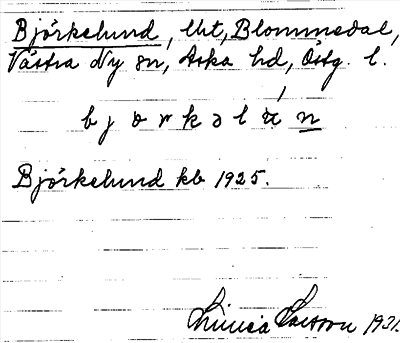 Björkelund, lht, Blommedal,
Västra Ny sn, Aska hd, Östg. l.
b j ö r k ə l ú n
Björkelund kb 1925.
Linnéa Larsson 1931.